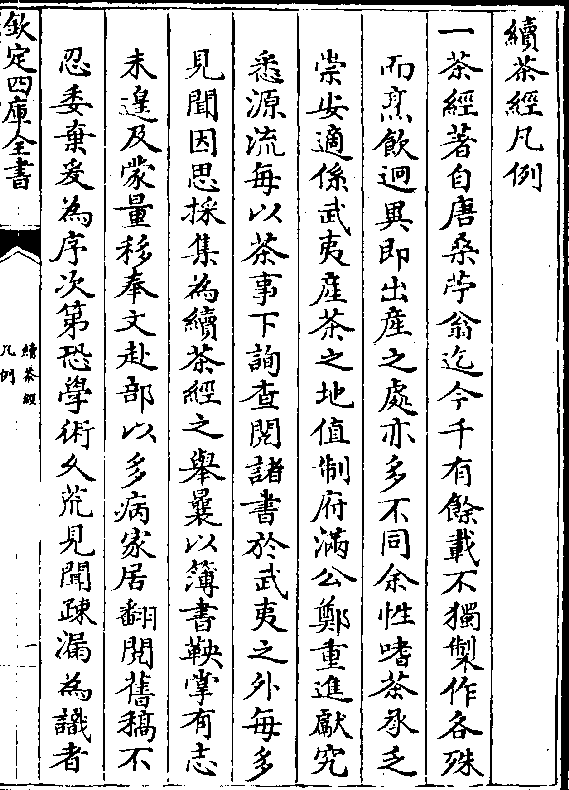 續茶經凡例
一茶經著自唐桑苧翁迄今千有餘載不獨製作各殊
而烹飲迥異即出產之處亦多不同余性嗜茶承乏
崇安適係武夷產茶之地值制府滿公鄭重進獻究
悉源流每以茶事下詢查閱諸書於武夷之外每多
見聞因思採集為續茶經之舉曩以簿書鞅掌有志
未遑及蒙量移奉文赴部以多病家居翻閱舊稿不
忍委棄爰為序次第恐學術久荒見聞疎漏為識者
欽定四庫全書
續茶經
凡例
一